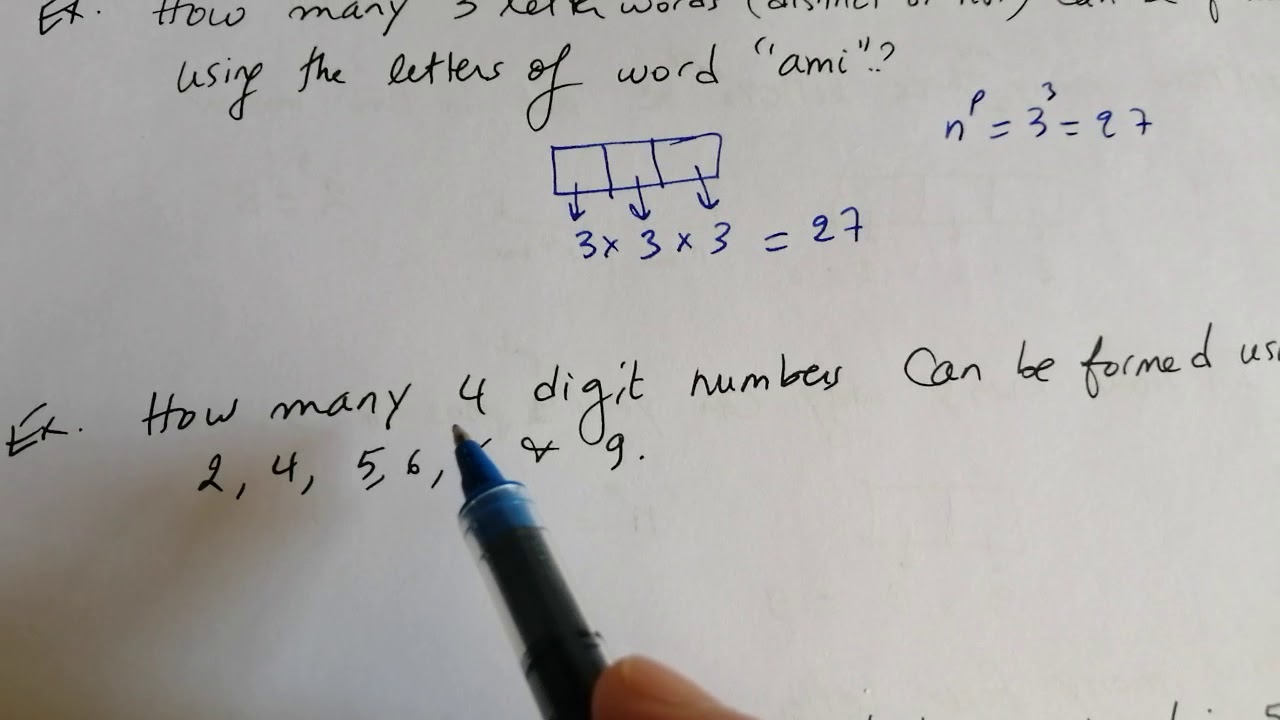 Ex. How many 3 letter words (distinct or not) can be
using the letters of word "ami"?
n^p = 3^3 = 27
3 × 3 × 3 = 27
Ex. How many 4 digit numbers Can be formed usi
2, 4, 5, 6, & 9.